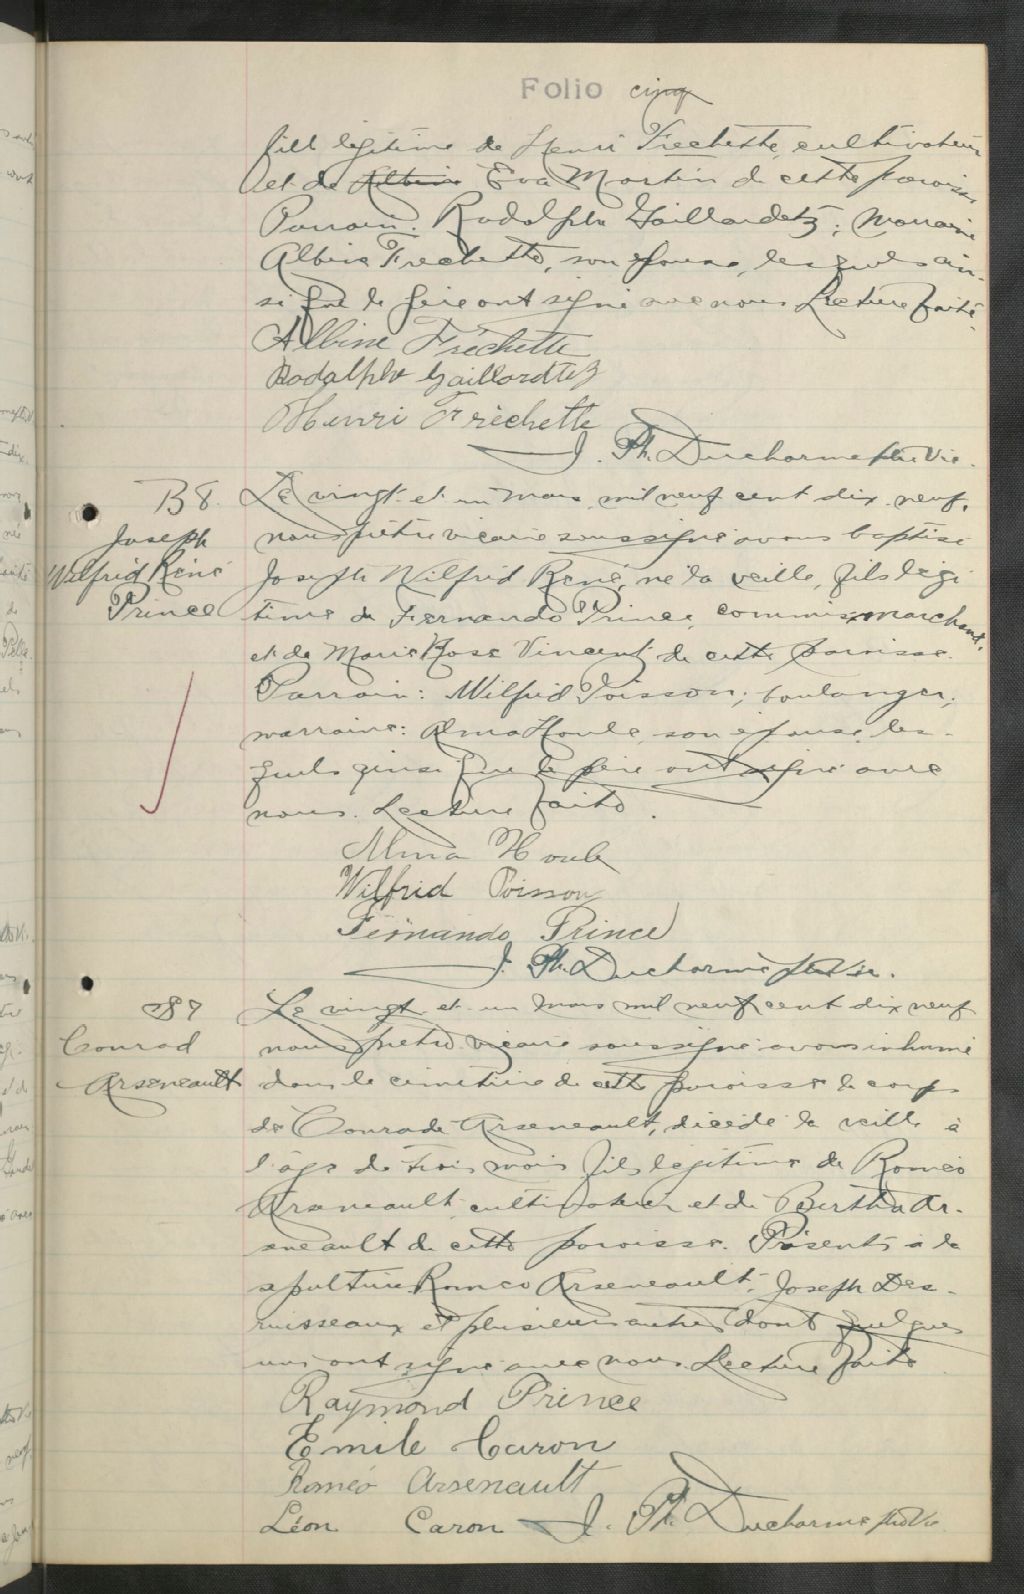 Folio cinq
fille légitime de Henri Frechette, cultivateur
et de Albina Eva Martin de cette paroisse
Parrain: Rodolphe Gaillardetz; Marraine
Albina Frechette, son épouse, lesquels ain-
si que le père ont signé avec nous. Lecture faite.
Albine Fréchette
Rodolphe Gaillardetz
Henri Fréchette
J. Ph. Ducharme ptre Vic.
B 8.
Joseph
Wilfrid René
Prince
Le vingt et un mars mil neuf cent dix neuf,
nous prêtre vicaire soussigné avons baptisé
Joseph Wilfrid René, né la veille, fils légi
time de Fernando Prince, commis marchand,
et de Marie Rose Vincent de cette paroisse.
Parrain: Wilfrid Poisson, boulanger;
marraine: Alma Houle, son épouse, les-
quels ainsi que le père ont signé avec
nous. Lecture faite.
Alma Houle
Wilfrid Poisson
Fernando Prince
J. Ph. Ducharme ptre Vic.
S 7
Conrad
Arseneault
Le vingt et un mars mil neuf cent dix neuf
nous prêtre vicaire soussigné avons inhumé
dans le cimetière de cette paroisse le corps
de Conrade Arseneault, décédé la veille à
l'âge de trois mois fils légitime de Roméo
Arseneault cultivateur et de Bertha Ar-
seneault de cette paroisse. Présents à la
sépulture Romeo Arseneault, Joseph Des-
ruisseaux et plusieurs autres dont quelques
uns ont signé avec nous. Lecture faite
Raymond Prince
Emile Caron
Roméo Arsenault
Léon Caron J. Ph. Ducharme ptre Vic